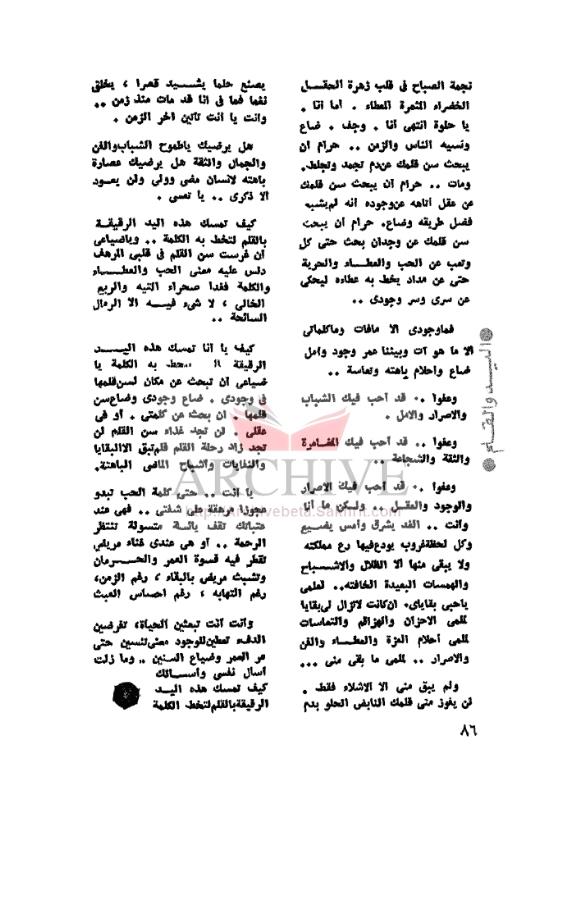 نجمة الصباح في قلب زهرة الحقل
الخضراء المثمرة العطاء . أما أنا .
يا حلوة انتهى أنا . وجف . ضاع
ونسيه الناس والزمن .. حرام أن
يبحث سن قلمك عن دم تجمد وتجلط.
ومات .. حرام أن يبحث سن قلمك
عن عقل أتاهه عن وجوده أنه لم يشبه
فضل طريقه وضاع. حرام أن يبحث
سن قلمك عن وجدان بحث حتى كل
وتعب عن الحب والعطاء والحرية
حتى عن مداد يخط به عطاءه ليحكى
عن سرى وسر وجودى ..
فما وجودى الا مافات وما كلماتى
الا ما هو آت وبيننا عمر وجود وأمل
ضاع وأحلام باهتة وتعاسة ..
وعفوا .. قد أحب فيك الشباب
والاصرار والأمل .
وعفوا .. قد أحب فيك المغامرة
والثقة والشجاعة ..
وعفوا .. قد أحب فيك الاصرار
والوجود والعقل .. ولكن ما أنا
وأنت .. الغد يشرق وأمس يضيع
وكل لحظة غروب يودع فيها رع مملكته
ولا يبقى منها الا الظلال والأشباح
والهمسات البعيدة الخافتة.. لملمى
ياحبى بقاياى. ان كانت لاتزال لى بقايا
لملمى الأحزان والهزائم والتعاسات
لملمى أحلام العزة والعطاء والفن
والاصرار .. لملمى ما بقى منى ...
ولم يبق منى الا الأشلاء فقط .
لن يفوز منى قلمك النابض الحلو بدم
يصنع حلما يشيد قصرا ، يخلق
نغما فما فى أنا قد مات منذ زمن ..
وأنت يا أنت تأتين آخر الزمن .
هل يرضيك ياطموح الشباب والفن
والجمال والثقة هل يرضيك عصارة
باهتة لانسان مضى وولى ولن يعود
الا ذكرى .. يا تعسى .
كيف تمسك هذه اليد الرقيقة
بالقلم لتخط به الكلمة .. وياضياعى
أن غرست سن القلم فى قلبى المرهف
دلس عليه معنى الحب والعطاء
والكلمة فغدا صحراء التيه والربع
الخالى ، لا شىء فيه الا الرمال
السائحة ..
كيف يا أنا تمسك هذه اليد
الرقيقة لتخط به الكلمة يا
ضياعى أن تبحث عن مكان لسن قلمها
فى وجودى . ضاع وجودى وضاع سن
قلمها . أن بحث عن كلمتى . أو فى
عقلى . لن تجد غذاء سن القلم لن
تجد زاد رحلة القلم فلم تبق الا البقايا
والنفايات وأشباح الماضى الباهتة.
يا أنت .. حتى كلمة الحب تبدو
عجوزا مرهقة على شفتى .. فهى عند
عتباتك تقف يائسة متسولة تنتظر
الرحمة .. أو هى عندى غناء مريض
تقطر فيه قسوة العمر والحرمان
وتشبث مريض بالبقاء ، رغم الزمن،
رغم التهابه ، رغم احساس العبث
وأنت أنت تبعثين الحياة، تفرضين
الدفء تعطين للوجود معنى تنسين حتى
مر العمر وضياع السنين .. وما زلت
أسأل نفسى وأسائلك
كيف تمسك هذه اليد
الرقيقة بالقلم لتخط الكلمة
اليد والقلم
٨٦
ARCHIVE